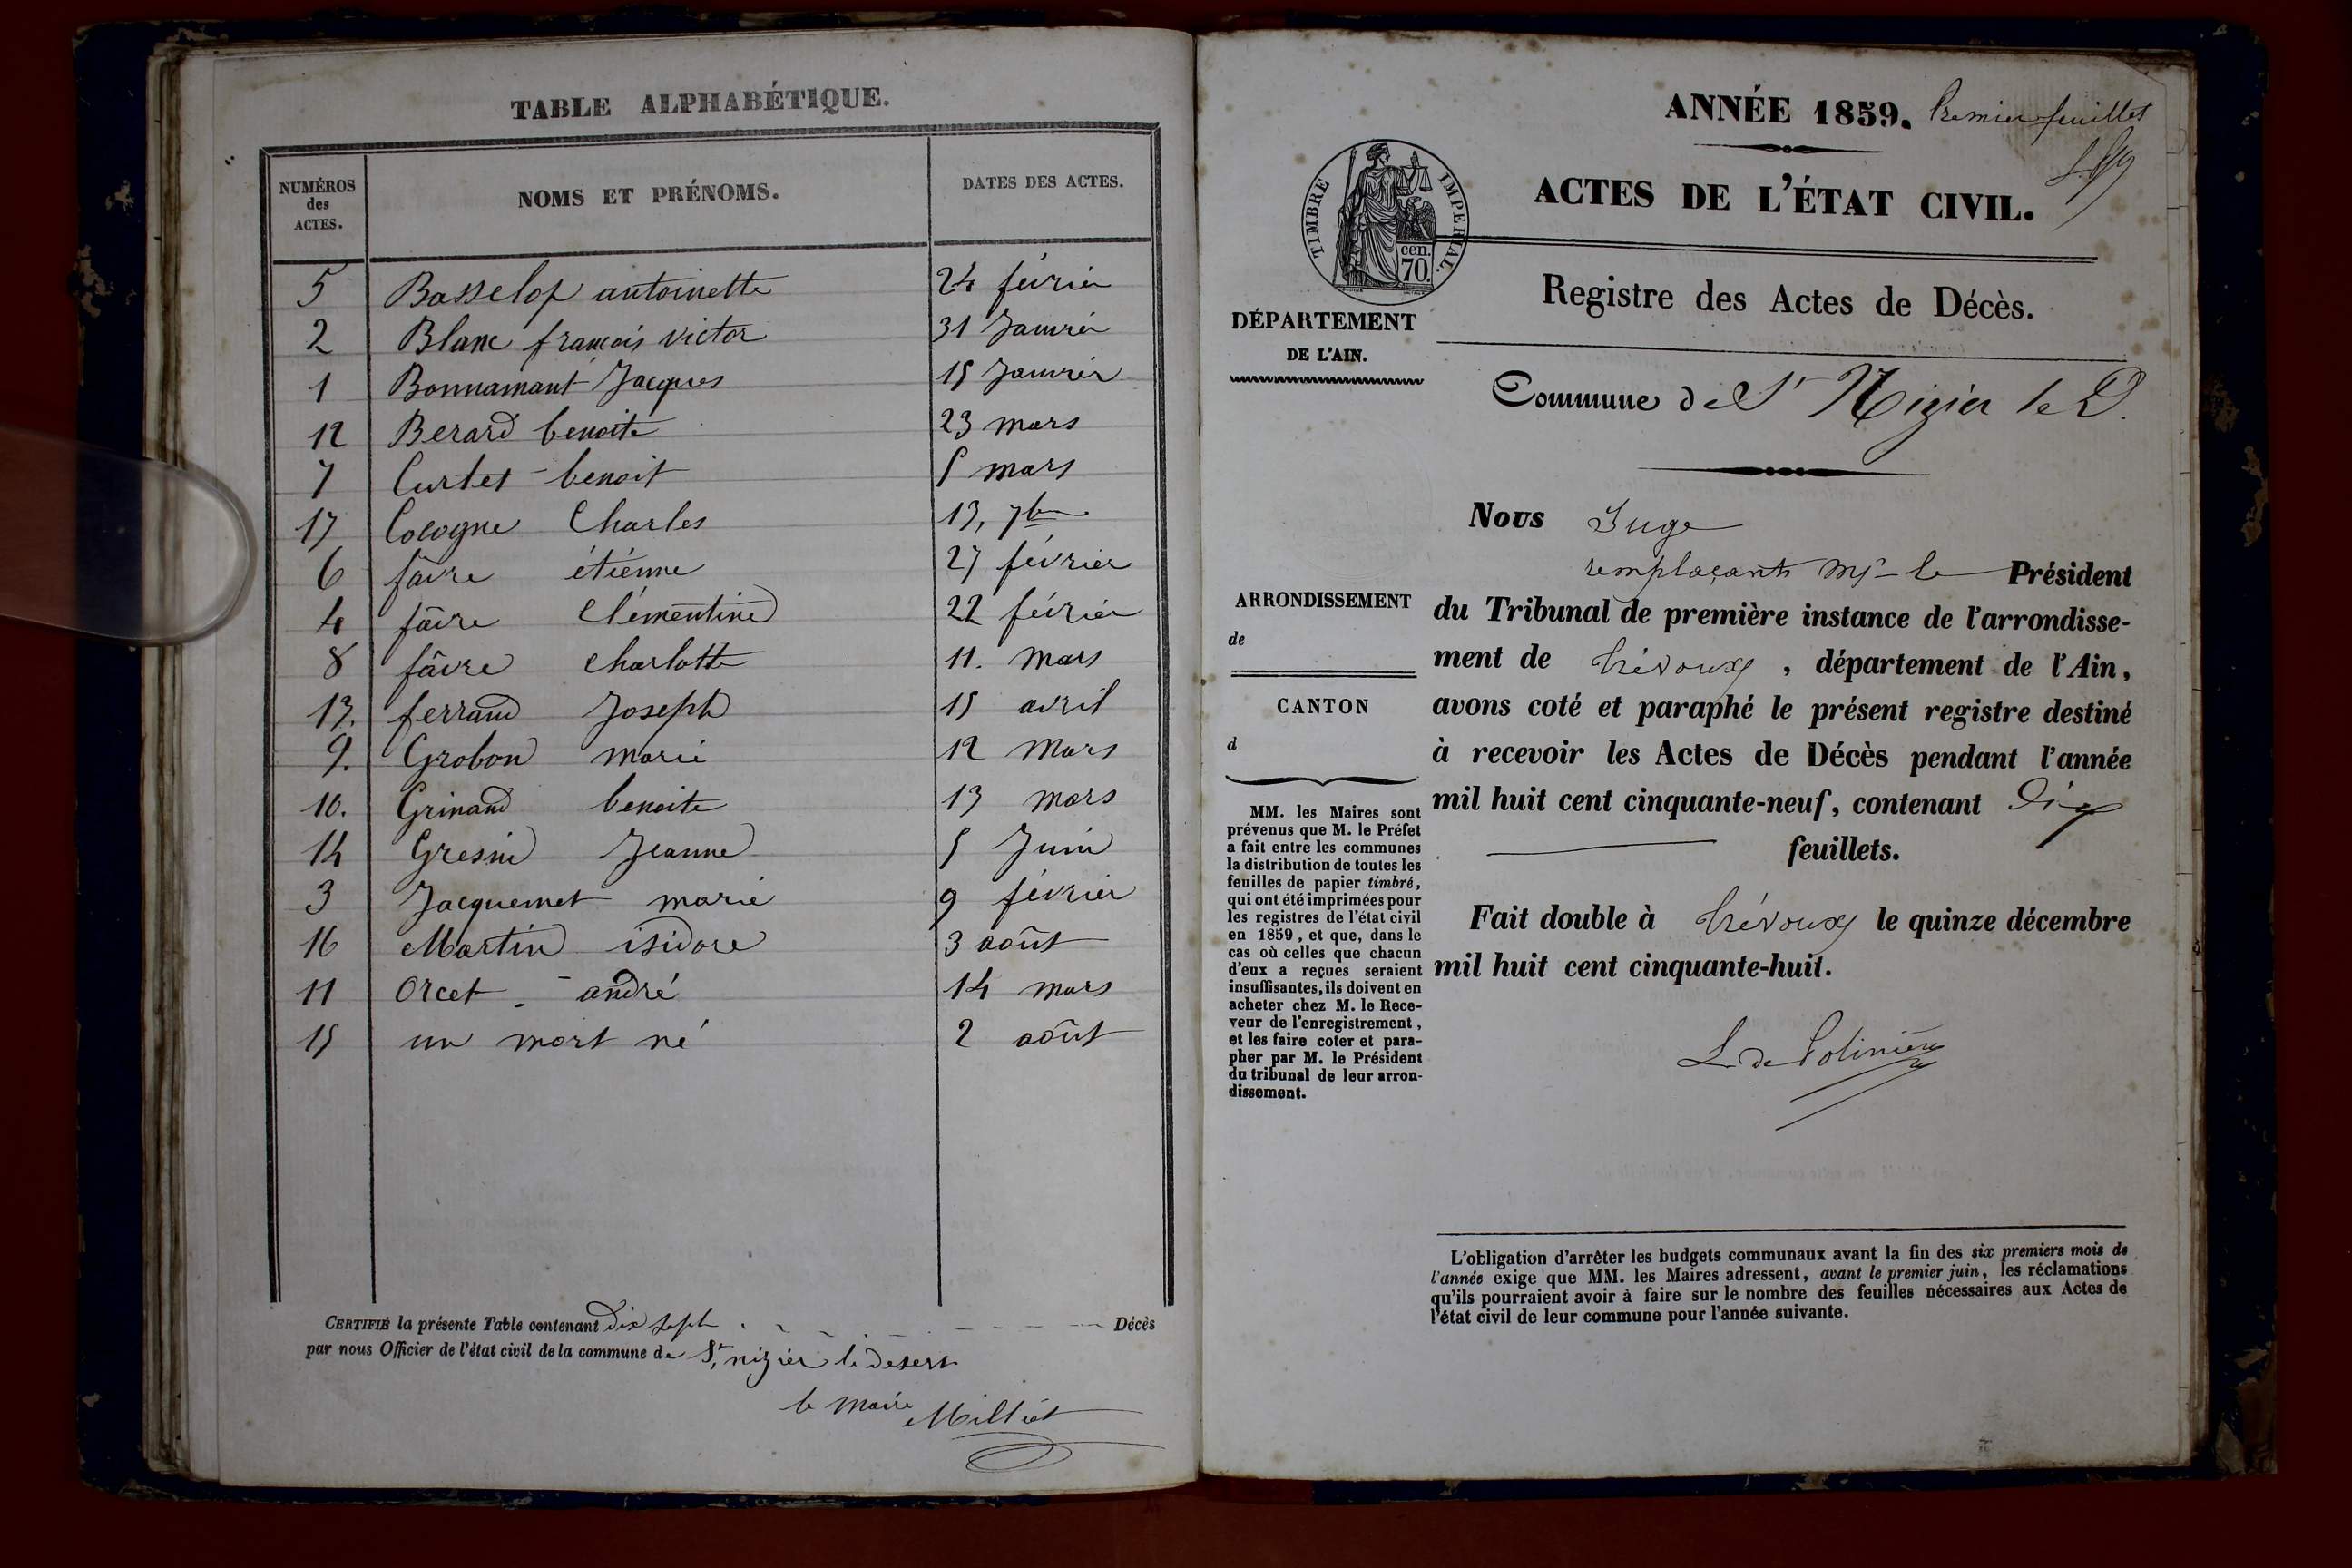 TABLE ALPHABÉTIQUE.
NUMÉROS des ACTES. NOMS ET PRÉNOMS. DATES DES ACTES.
5 Basselop antoinette 24 février
2 Blanc françois victor 31 Janvier
1 Bonnamant Jacques 15 Janvier
12 Berard benoite 23 mars
7 Curtet benoit 5 mars
17 Cocogne Charles 13, 7bre
6 fâvre étienne 27 février
4 fâvre Clémentine 22 février
8 fâvre charlotte 11. mars
13. ferrand Joseph 15 avril
9. Grobon marie 12 Mars
10. Grinand benoite 13 mars
14 Gresin Jeanne 5 Juin
3 Jacquemet marie 9 février
16 Martin isidore 3 août
11 Orcet - andré 14 mars
15 un mort né 2 août
CERTIFIÉ la présente Table contenant dix sept Décès
par nous Officier de l'état civil de la commune de St, nizier le desert
le maire Milliat
ANNÉE 1859. Premier feuillet
ACTES DE L'ÉTAT CIVIL.
TIMBRE IMPERIAL.
cen.
70.
Registre des Actes de Décès.
DÉPARTEMENT
DE L'AIN.
Commune de St Nizier le D.
Nous Juge
remplaçant Mr le Président
ARRONDISSEMENT
de
CANTON
d
du Tribunal de première instance de l'arrondisse-
ment de Trévoux, département de l'Ain,
avons coté et paraphé le présent registre destiné
à recevoir les Actes de Décès pendant l'année
mil huit cent cinquante-neuf, contenant Dix
feuillets.
Fait double à Trévoux le quinze décembre
mil huit cent cinquante-huit.
L. de Polinière
MM. les Maires sont
prévenus que M. le Préfet
a fait entre les communes
la distribution de toutes les
feuilles de papier timbré,
qui ont été imprimées pour
les registres de l'état civil
en 1859, et que, dans le
cas où celles que chacun
d'eux a reçues seraient
insuffisantes, ils doivent en
acheter chez M. le Rece-
veur de l'enregistrement,
et les faire coter et para-
pher par M. le Président
du tribunal de leur arron-
dissement.
L'obligation d'arrêter les budgets communaux avant la fin des six premiers mois de
l'année exige que MM. les Maires adressent, avant le premier juin, les réclamations
qu'ils pourraient avoir à faire sur le nombre des feuilles nécessaires aux Actes de
l'état civil de leur commune pour l'année suivante.